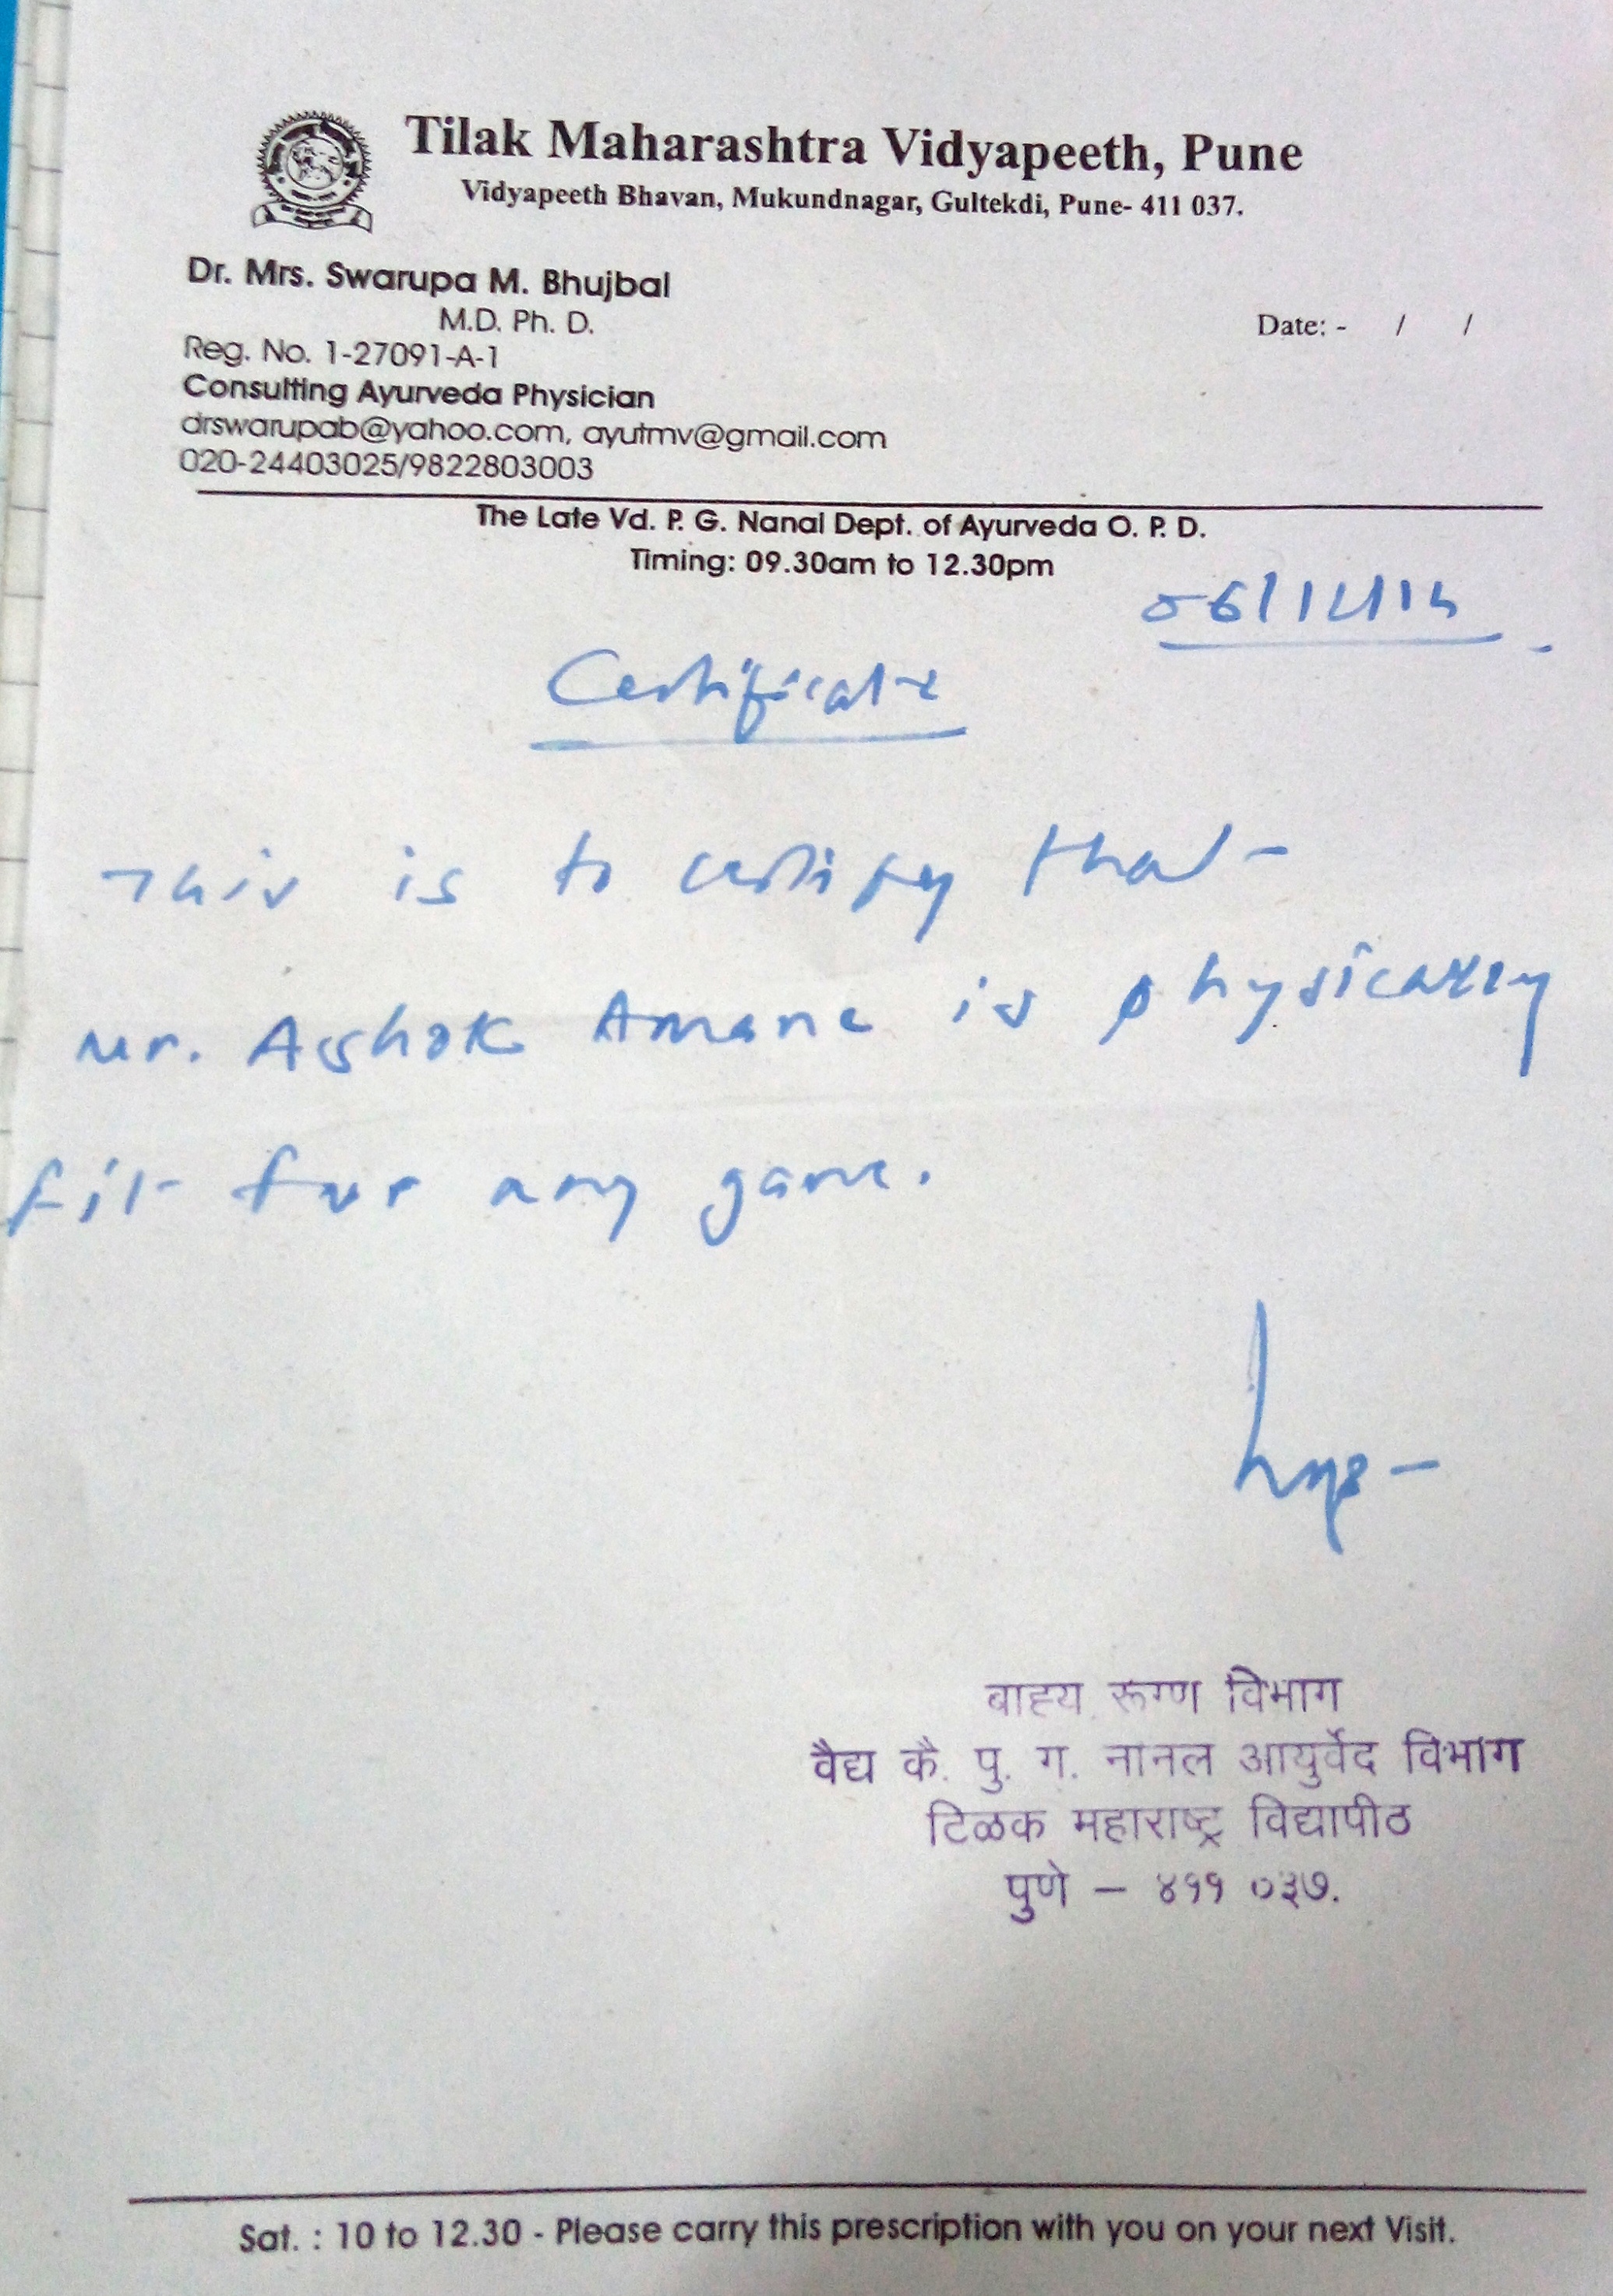 Tilak Maharashtra Vidyapeeth, Pune
Vidyapeeth Bhavan, Mukundnagar, Gultekdi, Pune- 411 037.
Dr. Mrs. Swarupa M. Bhujbal
M.D. Ph. D.
Date: - / /
Reg. No. 1-27091-A-1
Consulting Ayurveda Physician
drswarupab@yahoo.com, ayutmv@gmail.com
020-24403025/9822803003
The Late Vd. P. G. Nanal Dept. of Ayurveda O. P. D.
Timing: 09.30am to 12.30pm
Certificate
This is to certify that
Mr. Ashok Amane is physically
fit for any game.
बाह्य रूग्ण विभाग
वैद्य कै. पु. ग. नानल आयुर्वेद विभाग
टिळक महाराष्ट्र विद्यापीठ
पुणे – ४११ ०३७.
Sat. : 10 to 12.30 - Please carry this prescription with you on your next Visit.